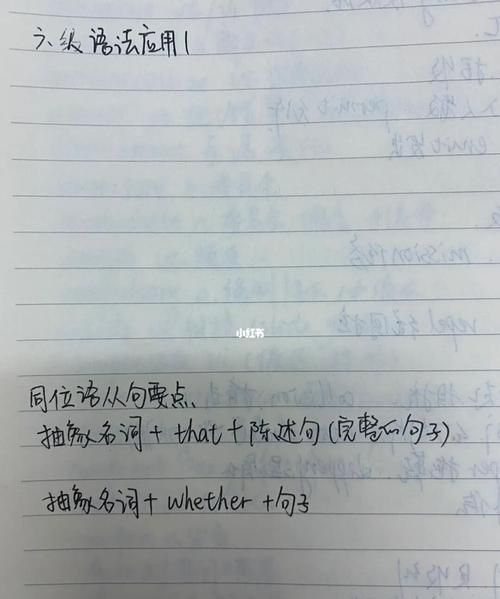 六级语法应用1
小红书
同位语从句要点、
抽象名词+that+陈述句(完整的句子)
抽象名词+whether+句子